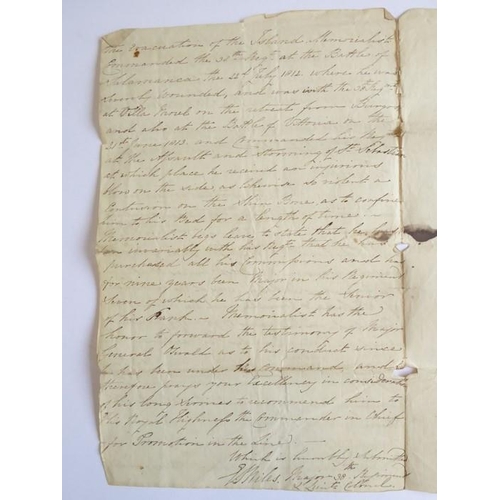 the evacuation of the Island Memorialist
Commanded the 38th Regt at the Battles of
Salamanca the 22d July 1812 where he was
Severely wounded, and was with the Regt
at Villa Murel on the retreat from Burgos
and also at the Battle of Vittoria on the
21st June 1813 and Commanded his Regt
at the Assault and Storming of St Sebastian
at which place he received an injurious
blow on the side, as likewise so violent a
Contusion on the Shin Bone as to confine
him to his Bed for a length of time.—
Memorialist begs leave to state that he has
been invariably with his Regt that he has
purchased all his Commissions and has
for nine years been Major in his Regiment
Seven of which he has been the Senior
of his Rank — Memorialist has the
honor to forward the testimony of Major
General Oswald as to his conduct since
he has been under his Command, and
therefore prays your Excellency in consideration
of his long Services to recommend him to
His Royal Highness the Commander in Chief
for Promotion in the Line.—
Which is humbly submitted
E Miles, Major 38th Regiment
& Lieut Colonel